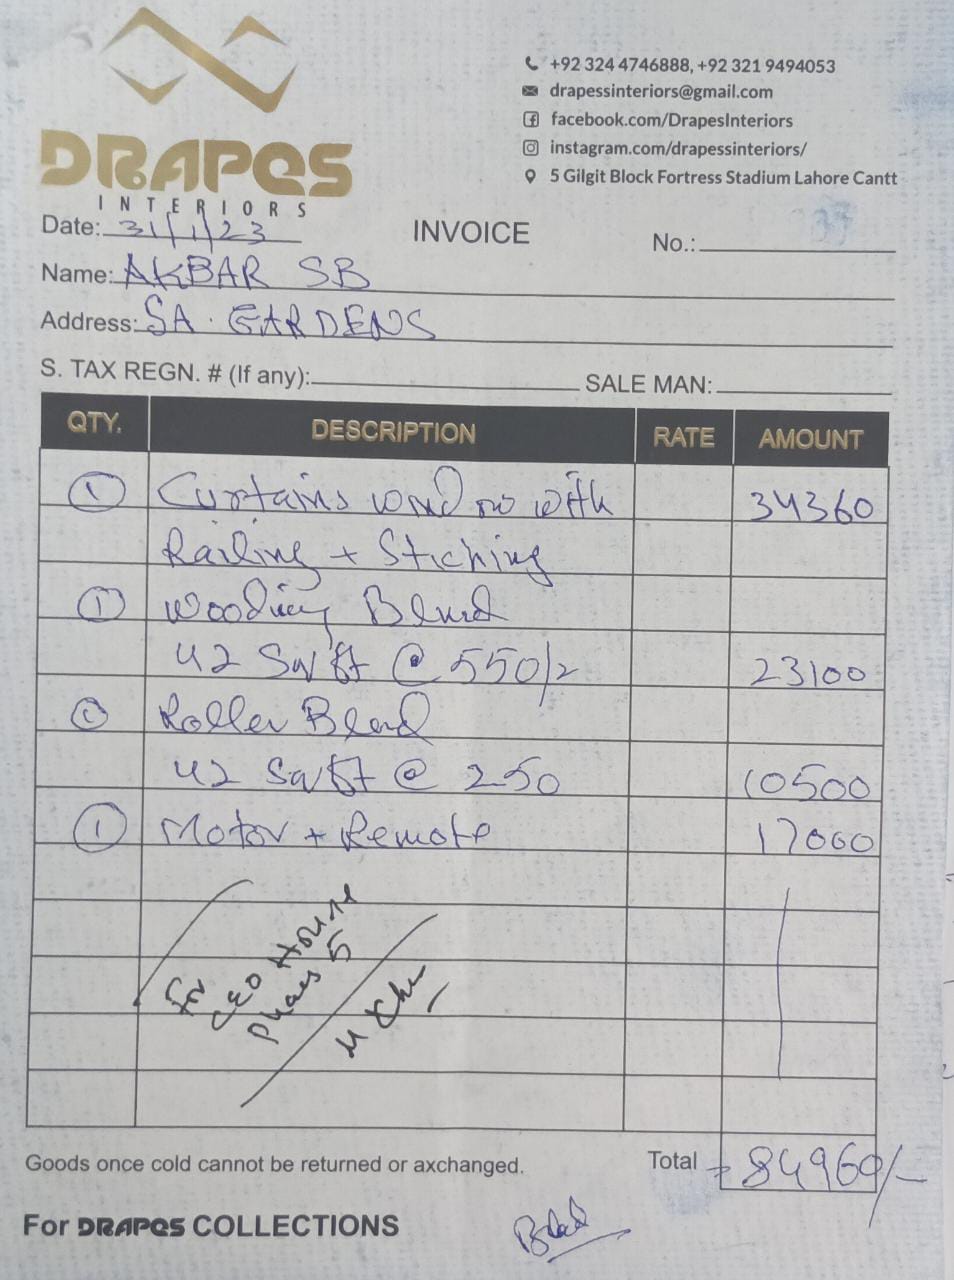 DRAPES
INTERIORS
+92 324 4746888, +92 321 9494053
drapessinteriors@gmail.com
facebook.com/DrapesInteriors
instagram.com/drapessinteriors/
5 Gilgit Block Fortress Stadium Lahore Cantt
Date: 31/1/23
INVOICE
No.:
Name: AKBAR SB
Address: SA. GARDENS
S. TAX REGN. # (If any): SALE MAN:
QTY. DESCRIPTION RATE AMOUNT
1 Curtains with 34360
Railing + Stiching
1 Blind
42 Sqft @ 550/2 23100
Roller Blend
42 Sqft @ 250 10500
1 Motor + Remote 17000
for
CEO House
Phaes 5
Goods once cold cannot be returned or axchanged.
Total 84960/-
For DRAPES COLLECTIONS